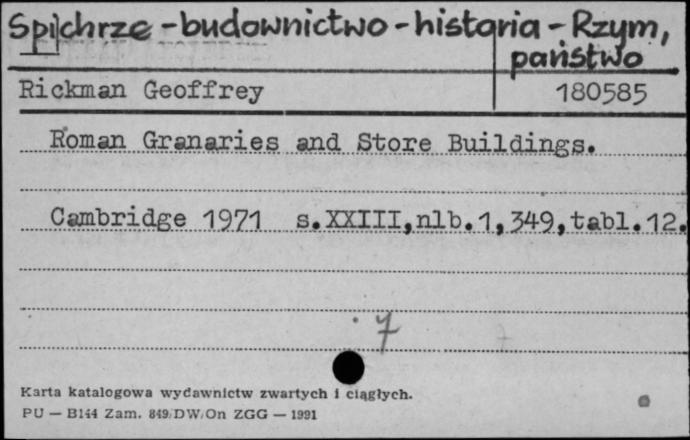 Spichrze - budownictwo - historia - Rzym,
państwo
Rickman Geoffrey 180585
Roman Granaries and Store Buildings.
Cambridge 1971 s.XXIII,nlb.1,349,tabl.12.
7
Karta katalogowa wydawnictw zwartych i ciągłych.
PU — B144 Zam. 849/DW/On ZGG — 1991